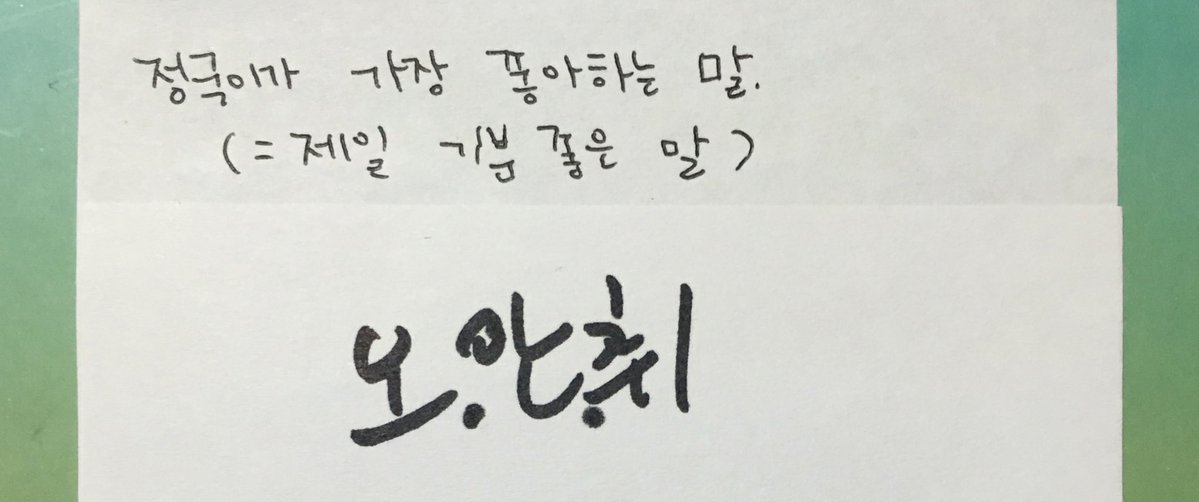 정국이가 가장 좋아하는 말.
(= 제일 기분 좋은 말)
오.안.취